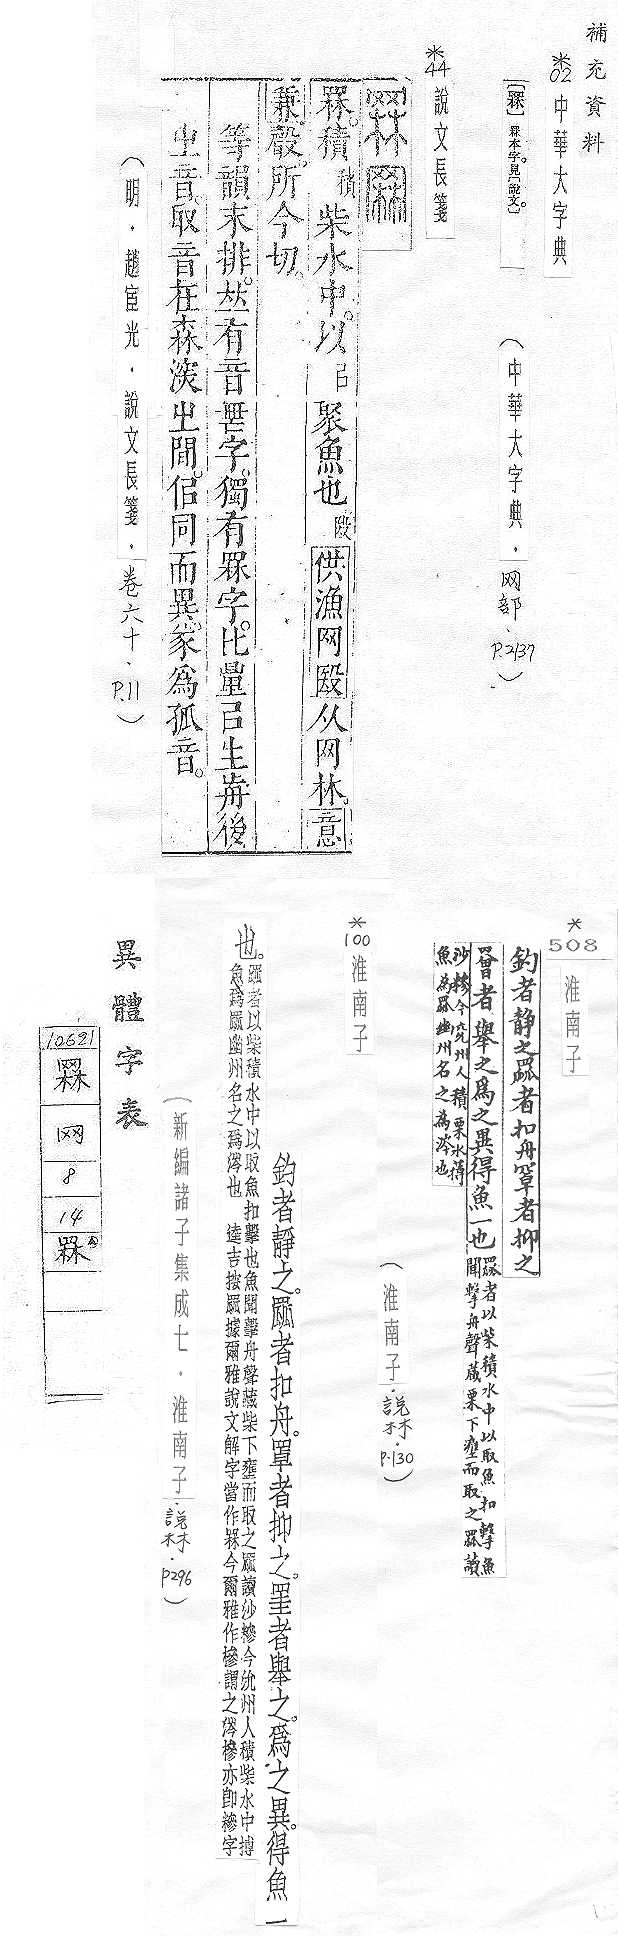 補充資料
*02 中華大字典
【罧】罧本字。見〔說文〕。
(中華大字典.网部.P.2137)
*44 說文長箋
罧積積柴水中。以㠯聚魚也
供漁网
从网林。意
兼聲。所今切。
等韻末排。
有音
字。獨有罧字。比量㠯生
後
㞢音。取音在森
㞢間。㠯同而異。
為孤音。
(明.趙宧光.說文長箋.卷六十.P.11)
*508 淮南子
釣者靜之罛者扣舟罩者抑之
罾者舉之為之異得魚一也
罛者以柴積水中以取魚扣擊魚
聞擊舟聲藏栗下壅而取之罛讀
沙糝今兖州人積栗水薄
魚為罛幽州名之為涔也
(淮南子.說林.P.130)
*100 淮南子
釣者靜之。罛者扣舟。罩者抑之。罣者舉之。為之異。得魚一
也。罛者以柴積水中以取魚扣擊也魚聞擊舟聲藏柴下壅而取之罛讀沙糝今沇州人積柴水中搏
魚為罛幽州名之為涔也 逵吉按罛據爾雅說文解字當作罧今爾雅作槮謂之涔槮亦卽糝字
(新編諸子集成七.淮南子.說林.P296)
異體字表
10621
罧
网
8
14
罧